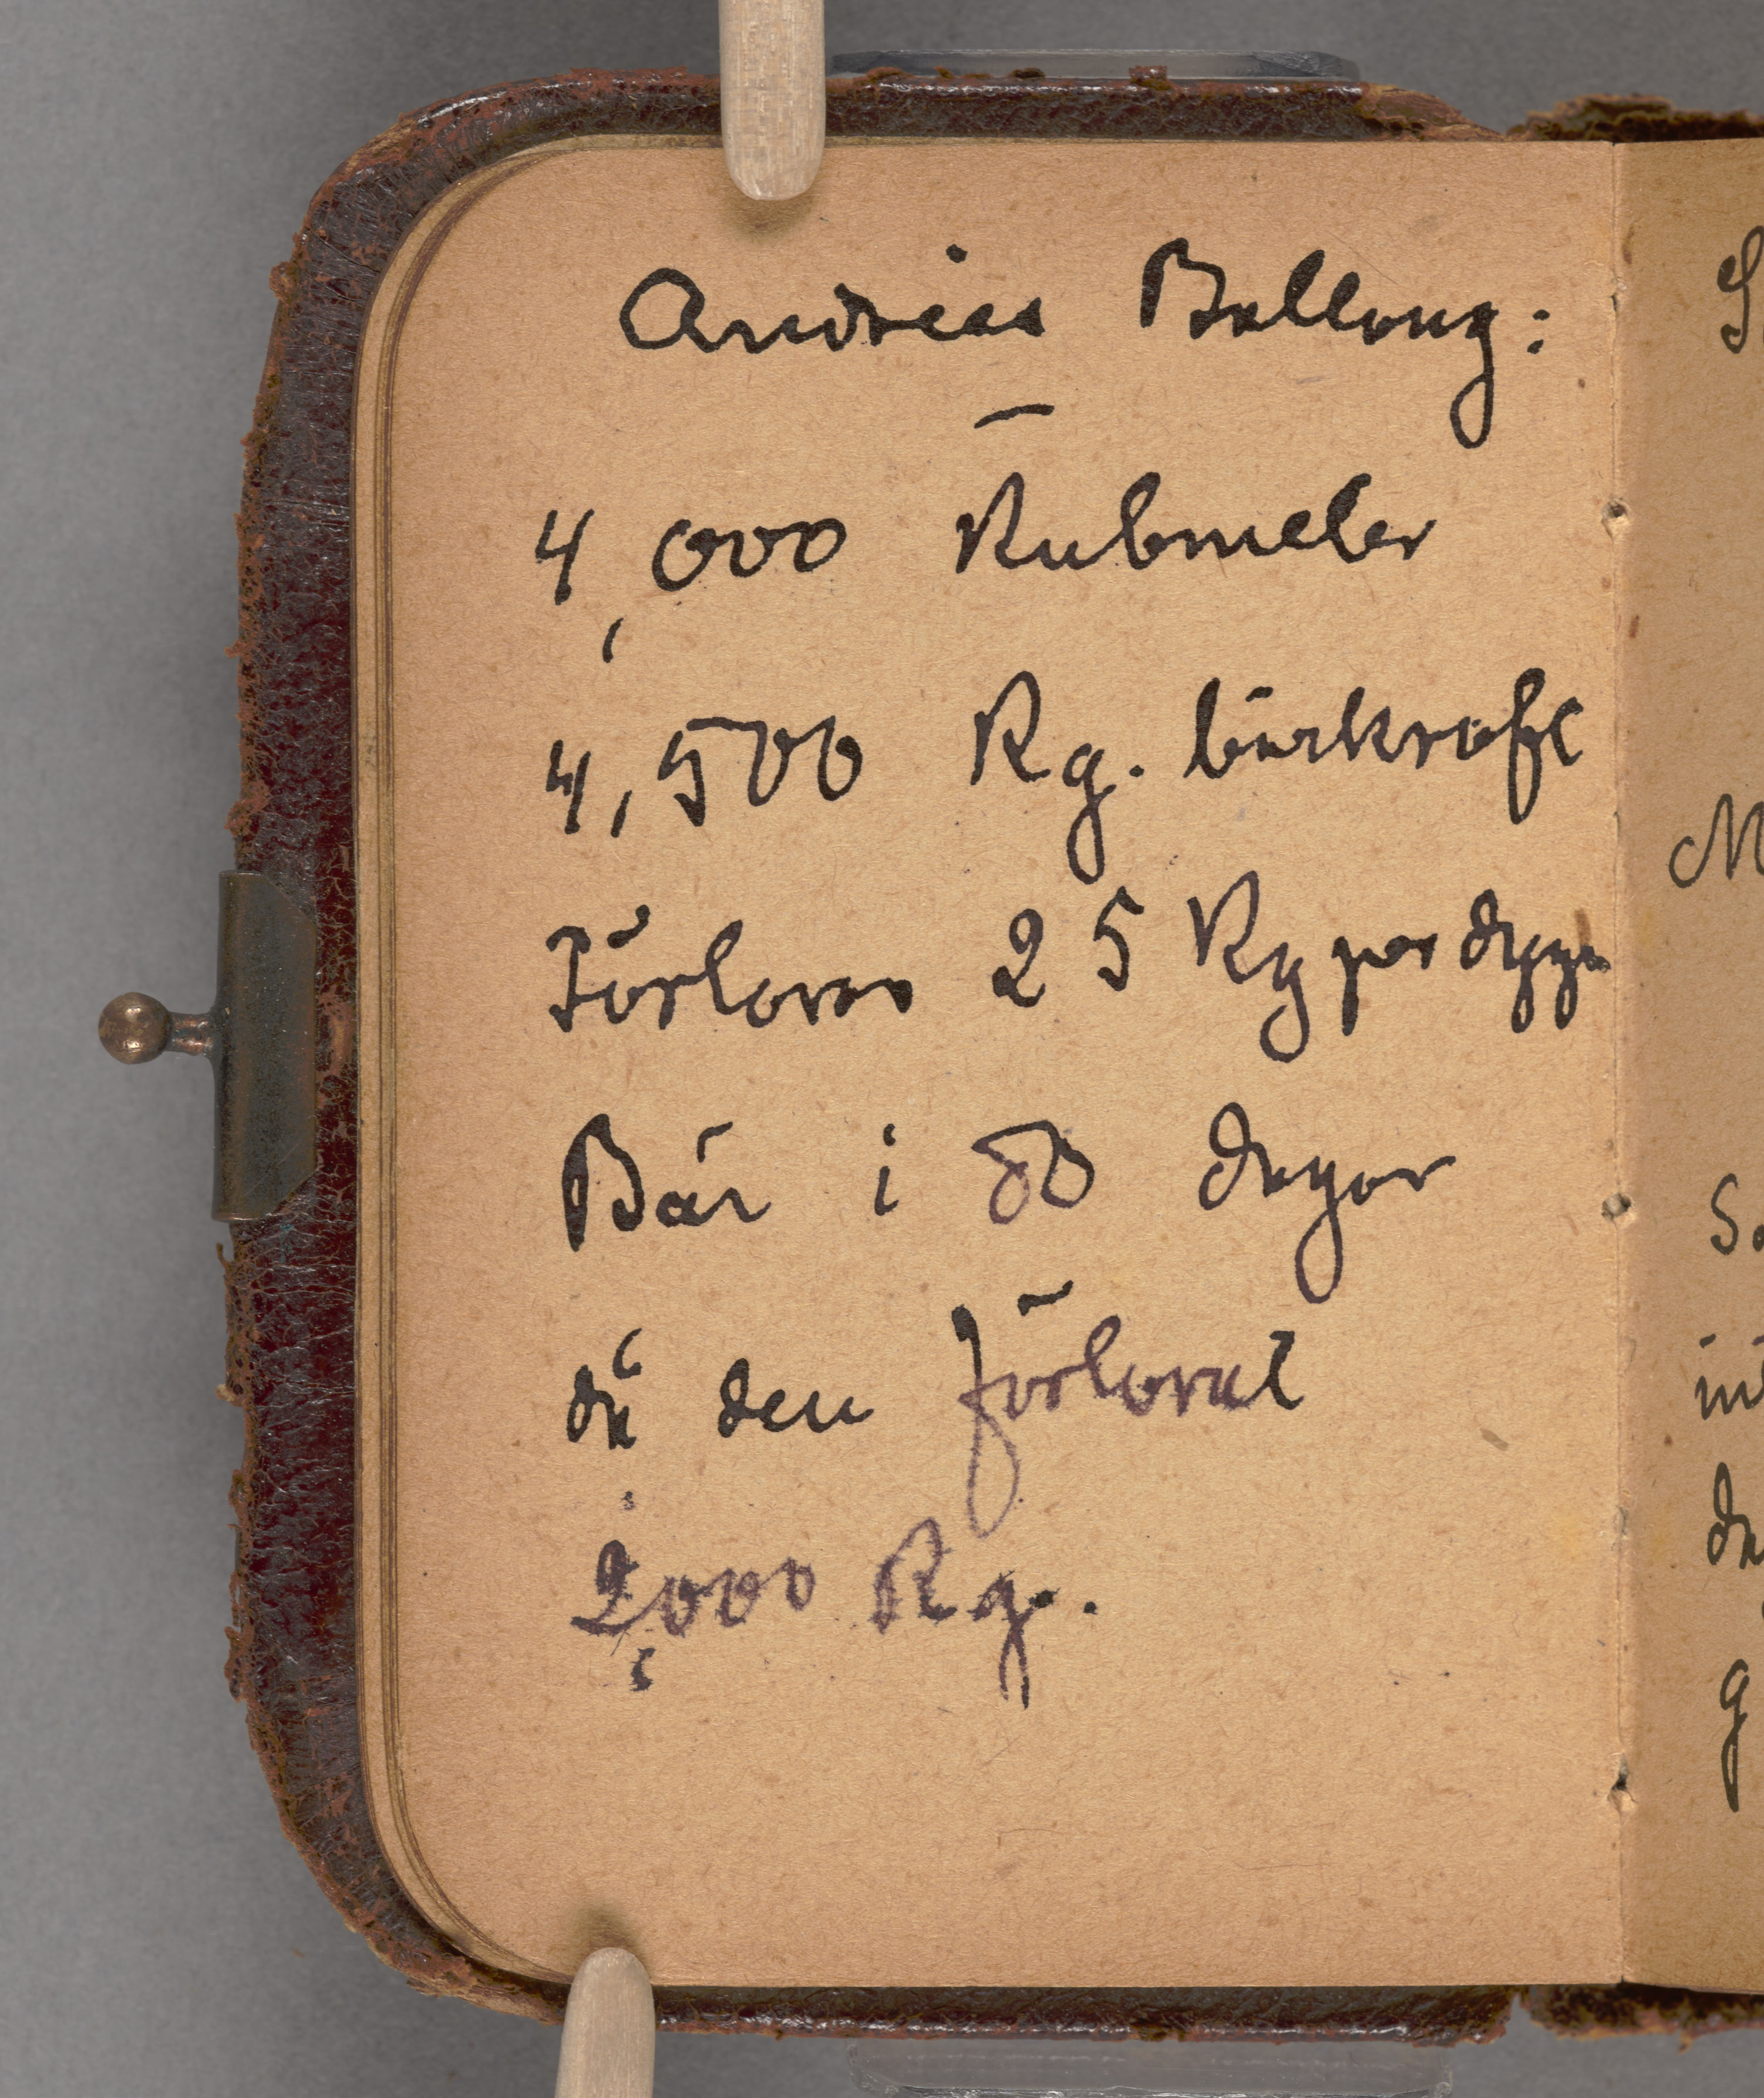 Andrées Ballong:
4,000 Kubmeter
4,500 Kg. bärkraft
Förloras 25 Kg per dygn
Bär i 80 dagar
då den förlorat
2,000 Kg.